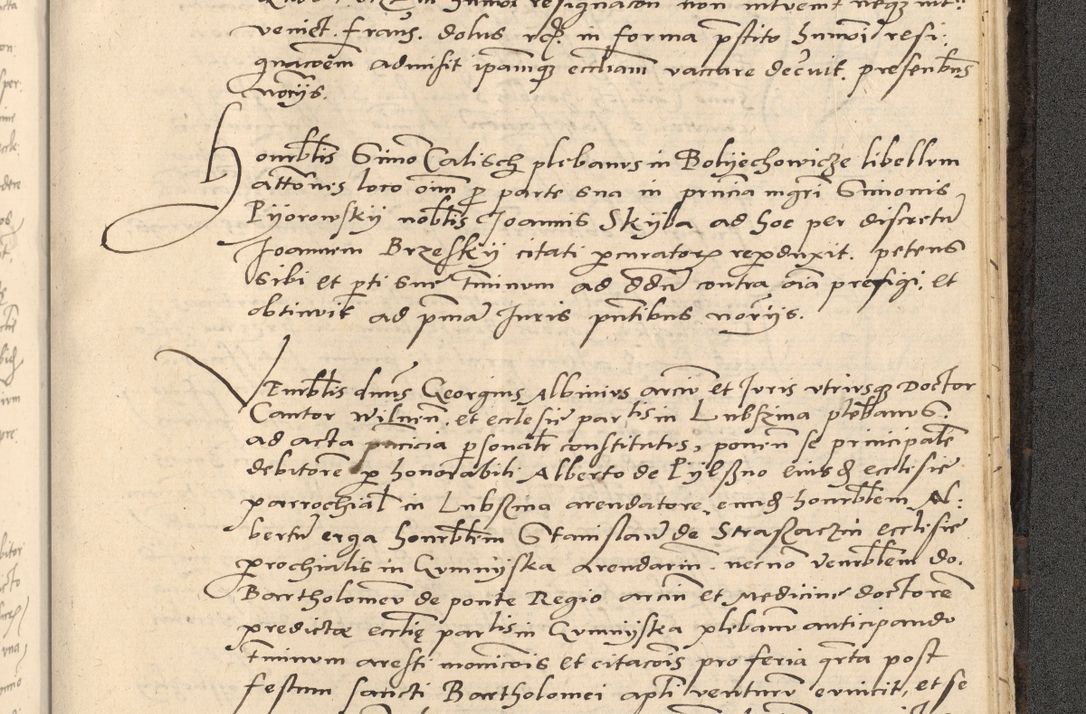 venict. fraus. dolus rcp. in forma pstito hnmoi resi:
gnacoem admisit ipamqz eccliam vaccare decruit. presentibus
notriis.
Honrbilis Simo Calisch plebanus in Bolyechowicze libellum
attonis loco oim p parte sua in princia mgri Simonis
Pijorowskij nobilis Joannis Skyba ad hoc per discretu
Joannem Brzeskij citati pcurator reproduxit. petens
sibi et pti sue tminum ad ddu contra oia prefigi, et
obtinuit ad pma Juris pntibus notriis.
Venrbilis dnus Georgius Albinus arciu et Juris utriusqz Doctor
Cantor Wilnen. et ecclesie parlis in Lubszina plebanus.
ad acta pncia psonalr constitutus, ponen se principale
debitore p honorabili Alberto de Pylszno eiusd ecclesie
parrochial in Lubszina arendatore, eund honrblem Al:
bertu erga honrblem Stanislau de Straszaczin ecclesie
prochialis in Gumnyska arendarin. necno venrblem do.
Bartholomeu de ponte Regio arciu et Medicine doctore
predicte ecclie parlis in Gumnyska plebanu anticipando
tminum aresti monicois et citacois pro feria qrta post
festum sancti Bartholomei apli venturu evincit, et se